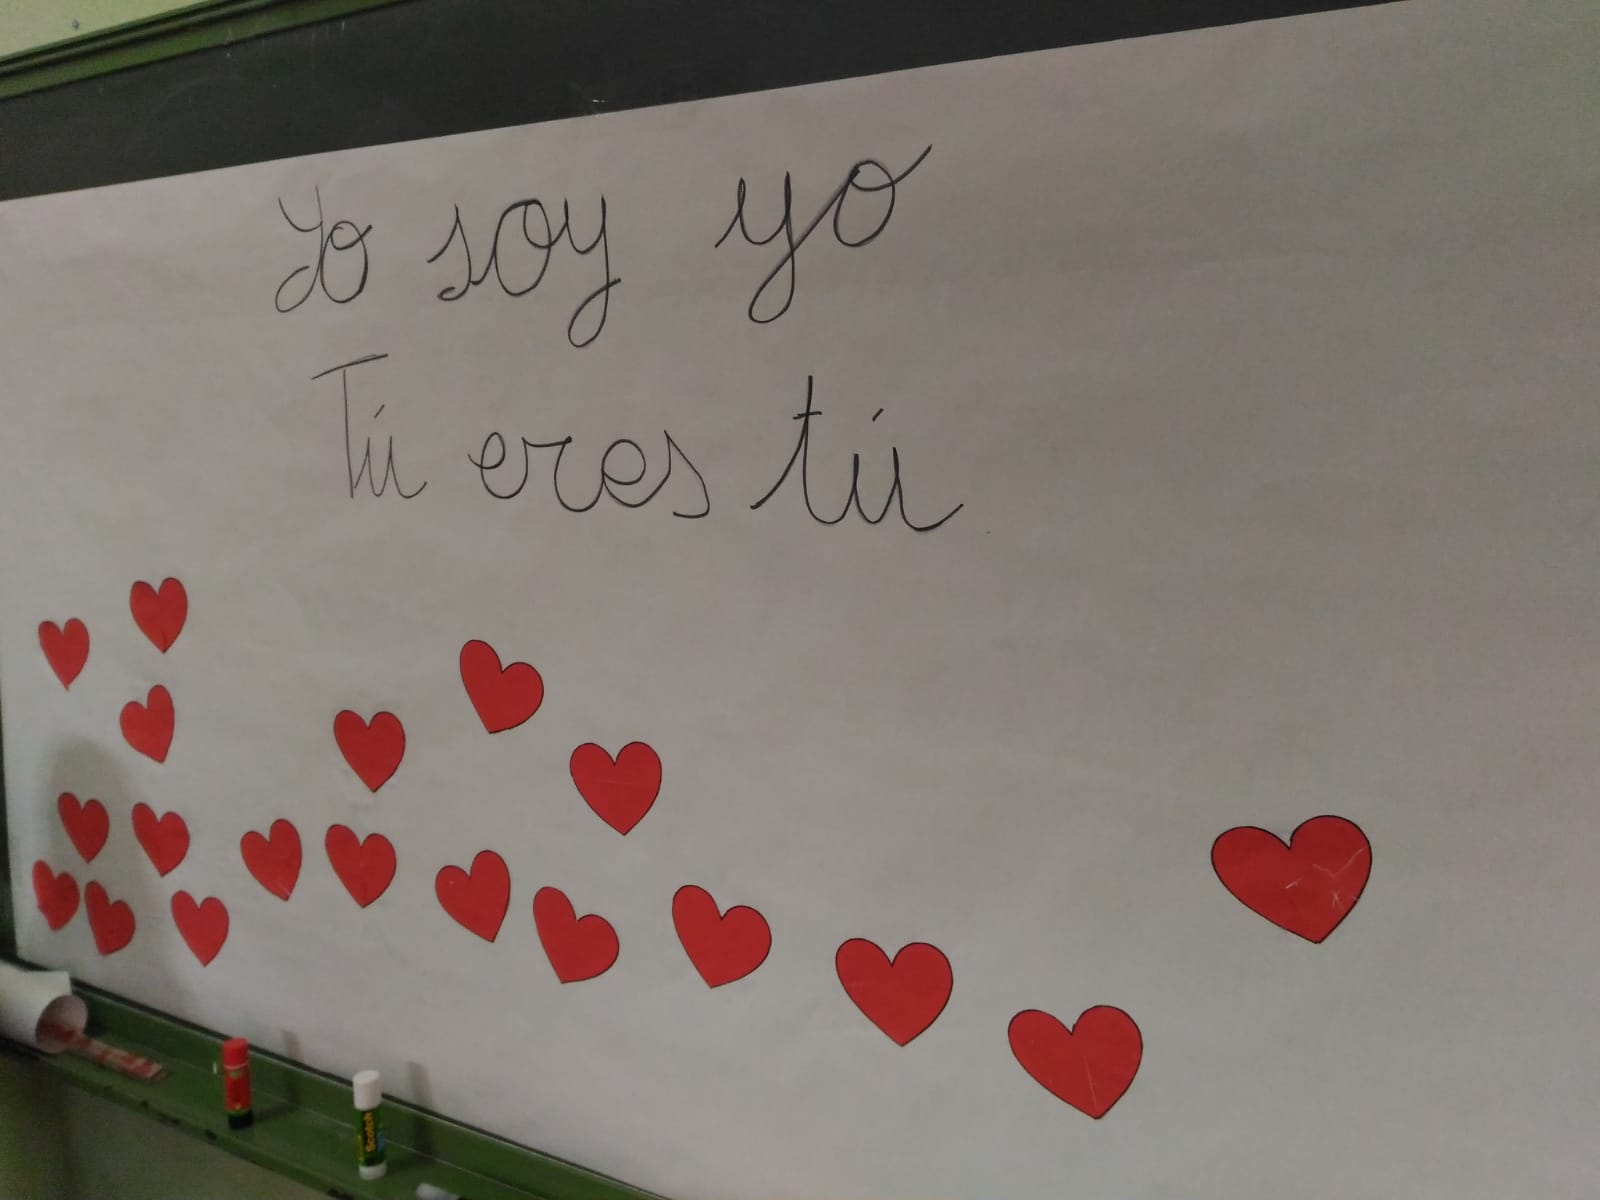 Yo soy yo
Tú eres tú
Scotch